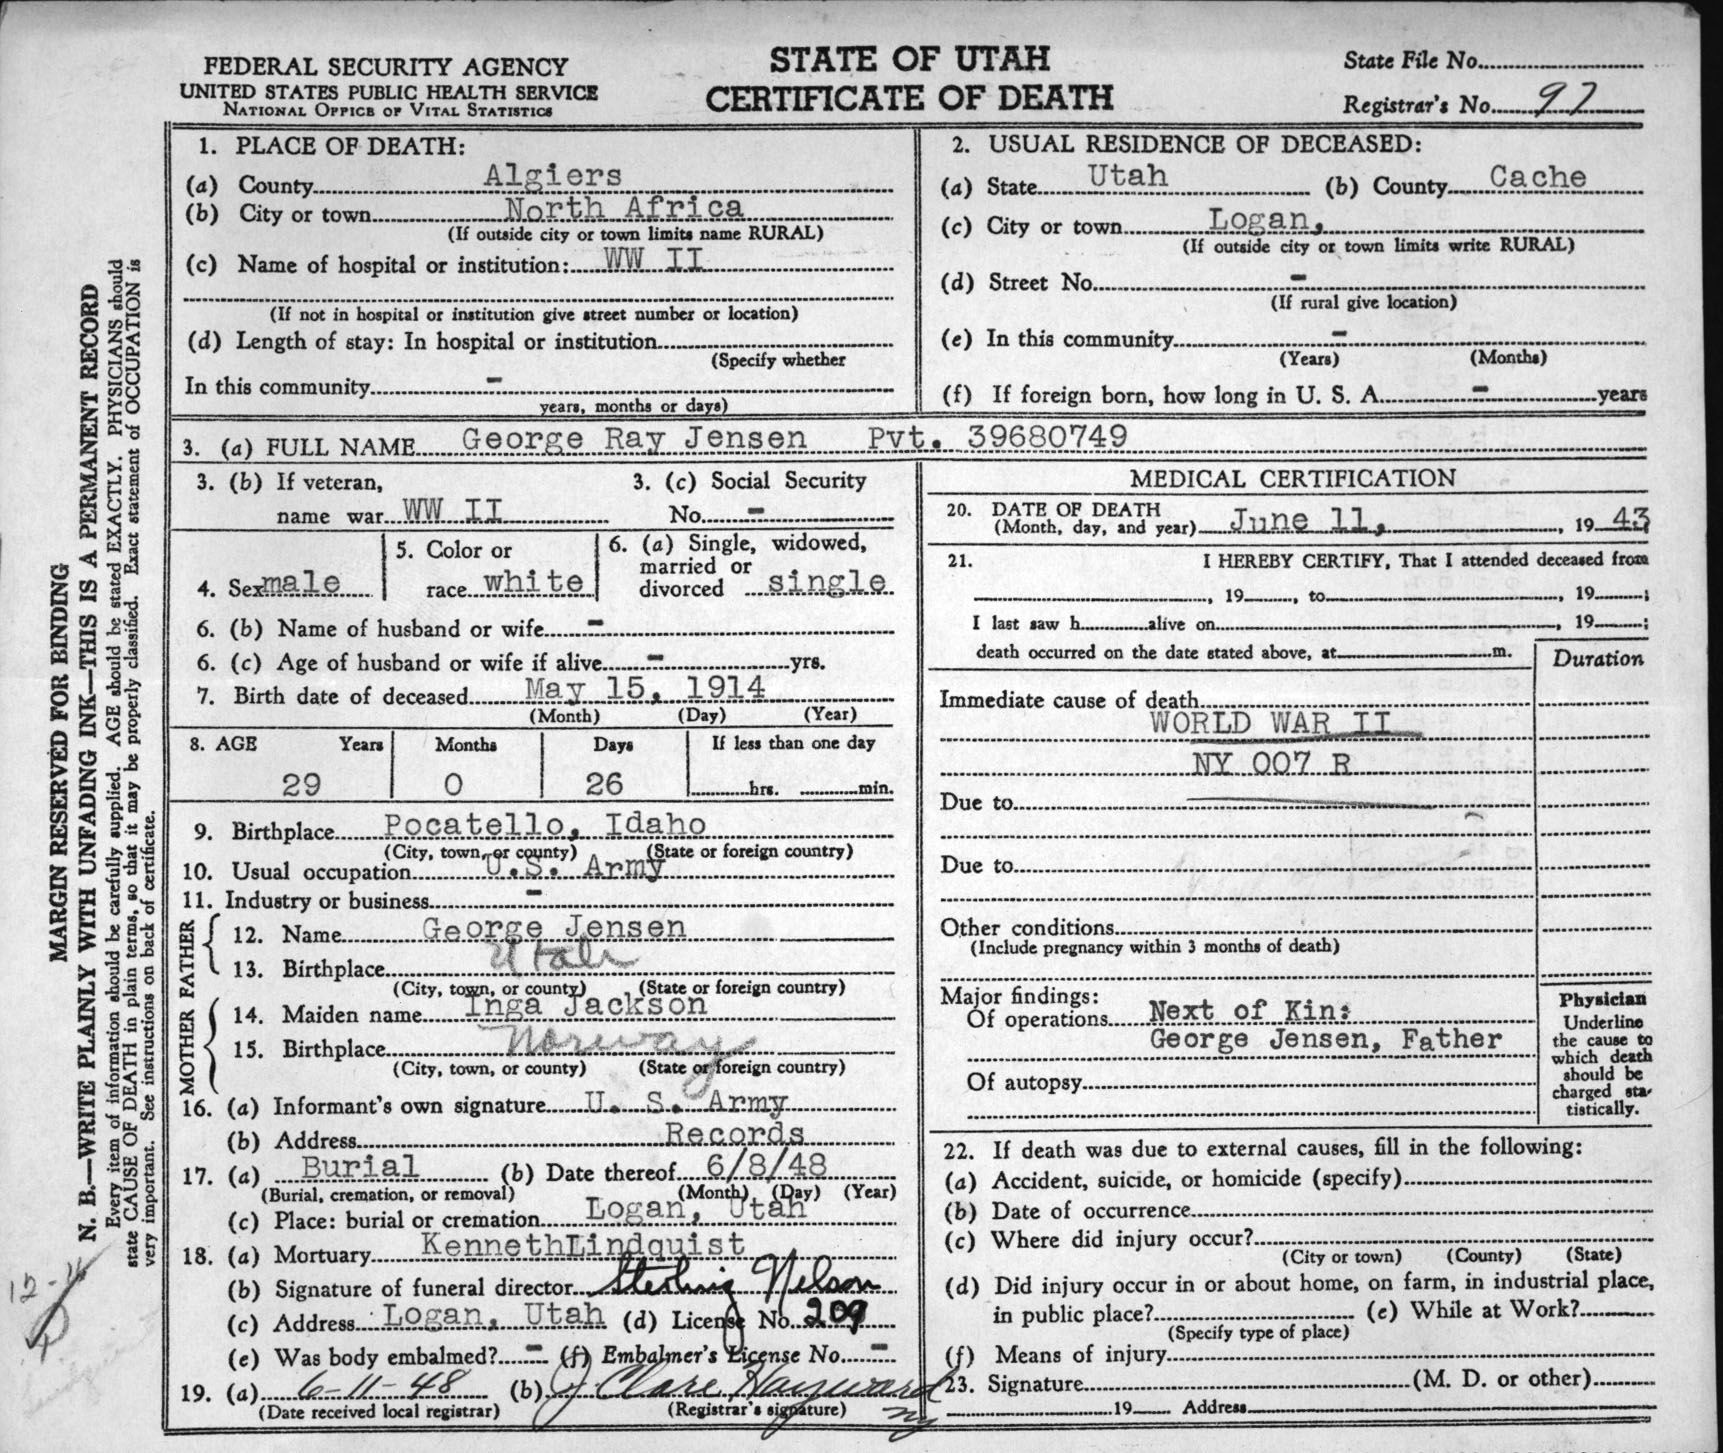 FEDERAL SECURITY AGENCY
UNITED STATES PUBLIC HEALTH SERVICE
NATIONAL OFFICE OF VITAL STATISTICS
STATE OF UTAH
CERTIFICATE OF DEATH
State File No.
Registrar's No. 97
MARGIN RESERVED FOR BINDING
N. B.—WRITE PLAINLY WITH UNFADING INK—THIS IS A PERMANENT RECORD
Every item of information should be carefully supplied. AGE should be stated EXACTLY. PHYSICIANS should
state CAUSE OF DEATH in plain terms, so that it may be properly classified. Exact statement of OCCUPATION is
very important. See instructions on back of certificate.
1. PLACE OF DEATH:
(a) County Algiers
(b) City or town North Africa
(If outside city or town limits name RURAL)
(c) Name of hospital or institution: WW II
(If not in hospital or institution give street number or location)
(d) Length of stay: In hospital or institution
(Specify whether
In this community -
years, months or days)
2. USUAL RESIDENCE OF DECEASED:
(a) State Utah (b) County Cache
(c) City or town Logan,
(If outside city or town limits write RURAL)
(d) Street No. -
(If rural give location)
(e) In this community -
(Years) (Months)
(f) If foreign born, how long in U. S. A. - years
3. (a) FULL NAME George Ray Jensen Pvt. 39680749
3. (b) If veteran,
name war WW II
3. (c) Social Security
No. -
4. Sex male
5. Color or
race white
6. (a) Single, widowed,
married or
divorced single
6. (b) Name of husband or wife -
6. (c) Age of husband or wife if alive - yrs.
7. Birth date of deceased May 15, 1914
(Month) (Day) (Year)
8. AGE Years Months Days If less than one day
29 0 26 hrs. min.
9. Birthplace Pocatello, Idaho
(City, town, or county) (State or foreign country)
10. Usual occupation U.S. Army
11. Industry or business -
FATHER
12. Name George Jensen
13. Birthplace Utah
(City, town, or county) (State or foreign country)
MOTHER
14. Maiden name Inga Jackson
15. Birthplace Norway
(City, town, or county) (State or foreign country)
16. (a) Informant's own signature U. S. Army
(b) Address Records
17. (a) Burial (b) Date thereof 6/8/48
(Burial, cremation, or removal) (Month) (Day) (Year)
(c) Place: burial or cremation Logan, Utah
18. (a) Mortuary KennethLindquist
(b) Signature of funeral director Sterling Nelson
(c) Address Logan, Utah (d) License No. 209
(e) Was body embalmed? - (f) Embalmer's License No. -
19. (a) 6-11-48 (b) J. Clare Hayward
(Date received local registrar) (Registrar's signature)
MEDICAL CERTIFICATION
20. DATE OF DEATH
(Month, day, and year) June 11, , 19 43
21. I HEREBY CERTIFY, That I attended deceased from
, 19 , to , 19 ;
I last saw h alive on , 19 ;
death occurred on the date stated above, at m.
Duration
Immediate cause of death
WORLD WAR II
NY 007 R
Due to
Due to
Other conditions
(Include pregnancy within 3 months of death)
Major findings:
Of operations Next of Kin:
George Jensen, Father
Of autopsy
Physician
Underline
the cause to
which death
should be
charged sta-
tistically.
22. If death was due to external causes, fill in the following:
(a) Accident, suicide, or homicide (specify)
(b) Date of occurrence
(c) Where did injury occur?
(City or town) (County) (State)
(d) Did injury occur in or about home, on farm, in industrial place,
in public place? (e) While at Work?
(Specify type of place)
(f) Means of injury
23. Signature (M. D. or other)
19 Address